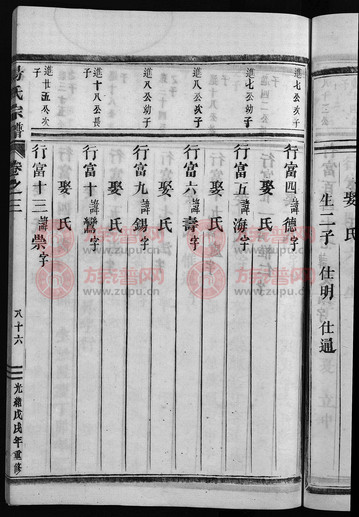 娶氏
生二子 仕明 仕通
進七公次子
行富四諱德字
娶氏
進七公幼子
行富五諱海字
娶氏
進八公次子
行富六諱壽字
娶氏
進八公幼子
行富九諱錫字
娶氏
進十八公長子
行富十諱鸞字
娶氏
進廿五公次子
行富十三諱崇字
氏宗譜
卷之三
八十六
光緒戊戌年重修
族谱网
www.zupu.cn
族谱网
www.zupu.cn